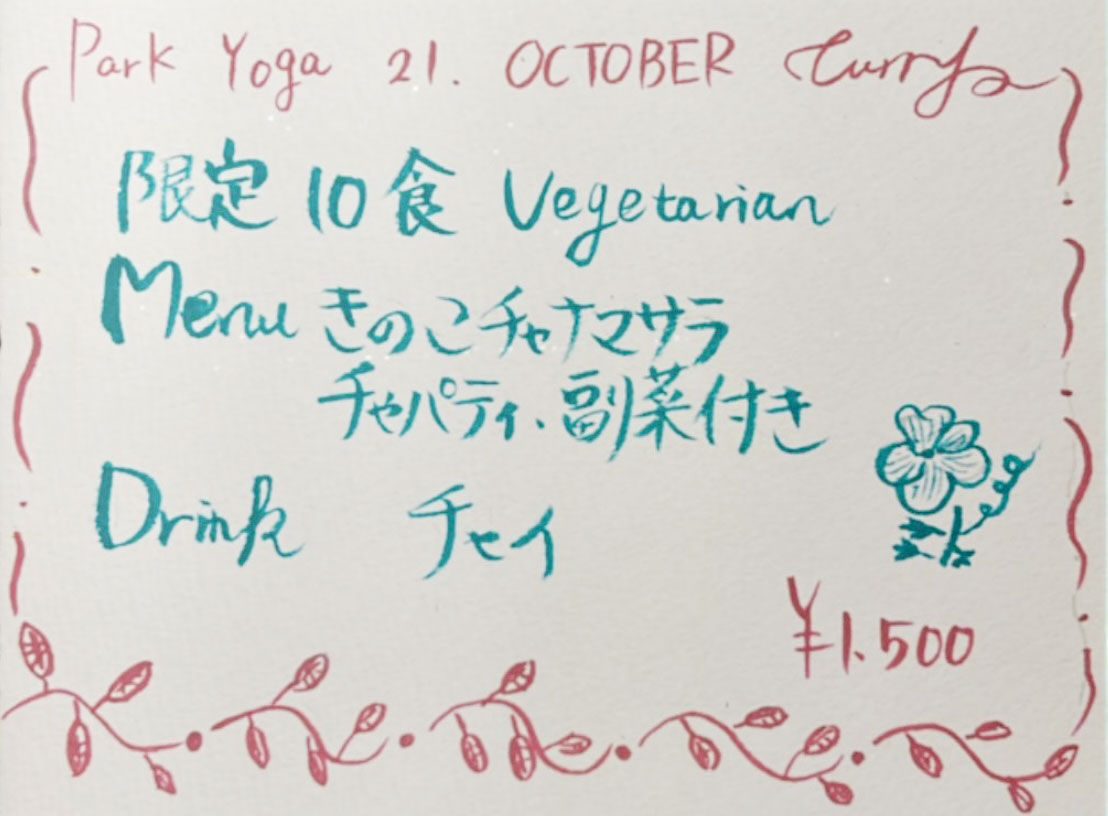 Park Yoga 21. OCTOBER Curry
限定10食 Vegetarian
Menu きのこチャナマサラ
チャパティ、副菜付き
Drink チャイ
¥1.500